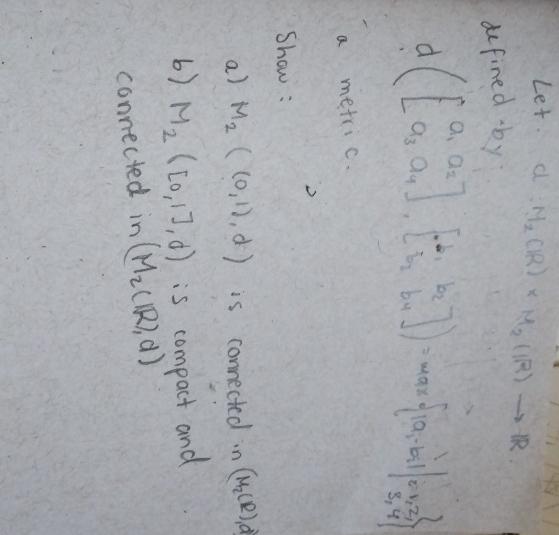 Let. d : M₂(ℝ) × M₂(ℝ) → ℝ.
defined by:
d ( [ a₁ a₂ ; a₃ a₄ ] , [ b₁ b₂ ; b₂ b₄ ] ) = max { |aᵢ - bᵢ| | i = 1, 2, 3, 4 }
a metric.
Show:
a) M₂ ( (0,1), d ) is connected in (M₂(ℝ), d)
b) M₂ ([0,1], d) is compact and
connected in (M₂(ℝ), d)